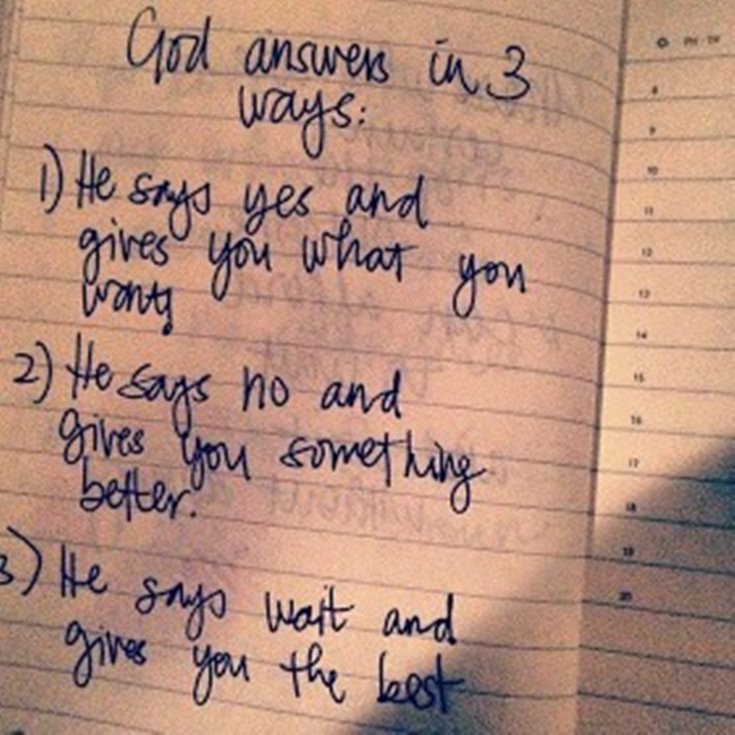 God answers in 3
ways:
1) He says yes and
gives you what you
want,
2) He says no and
gives you something
better.
3) He says wait and
gives you the best
8
9
10
11
12
13
14
15
16
17
18
19
20